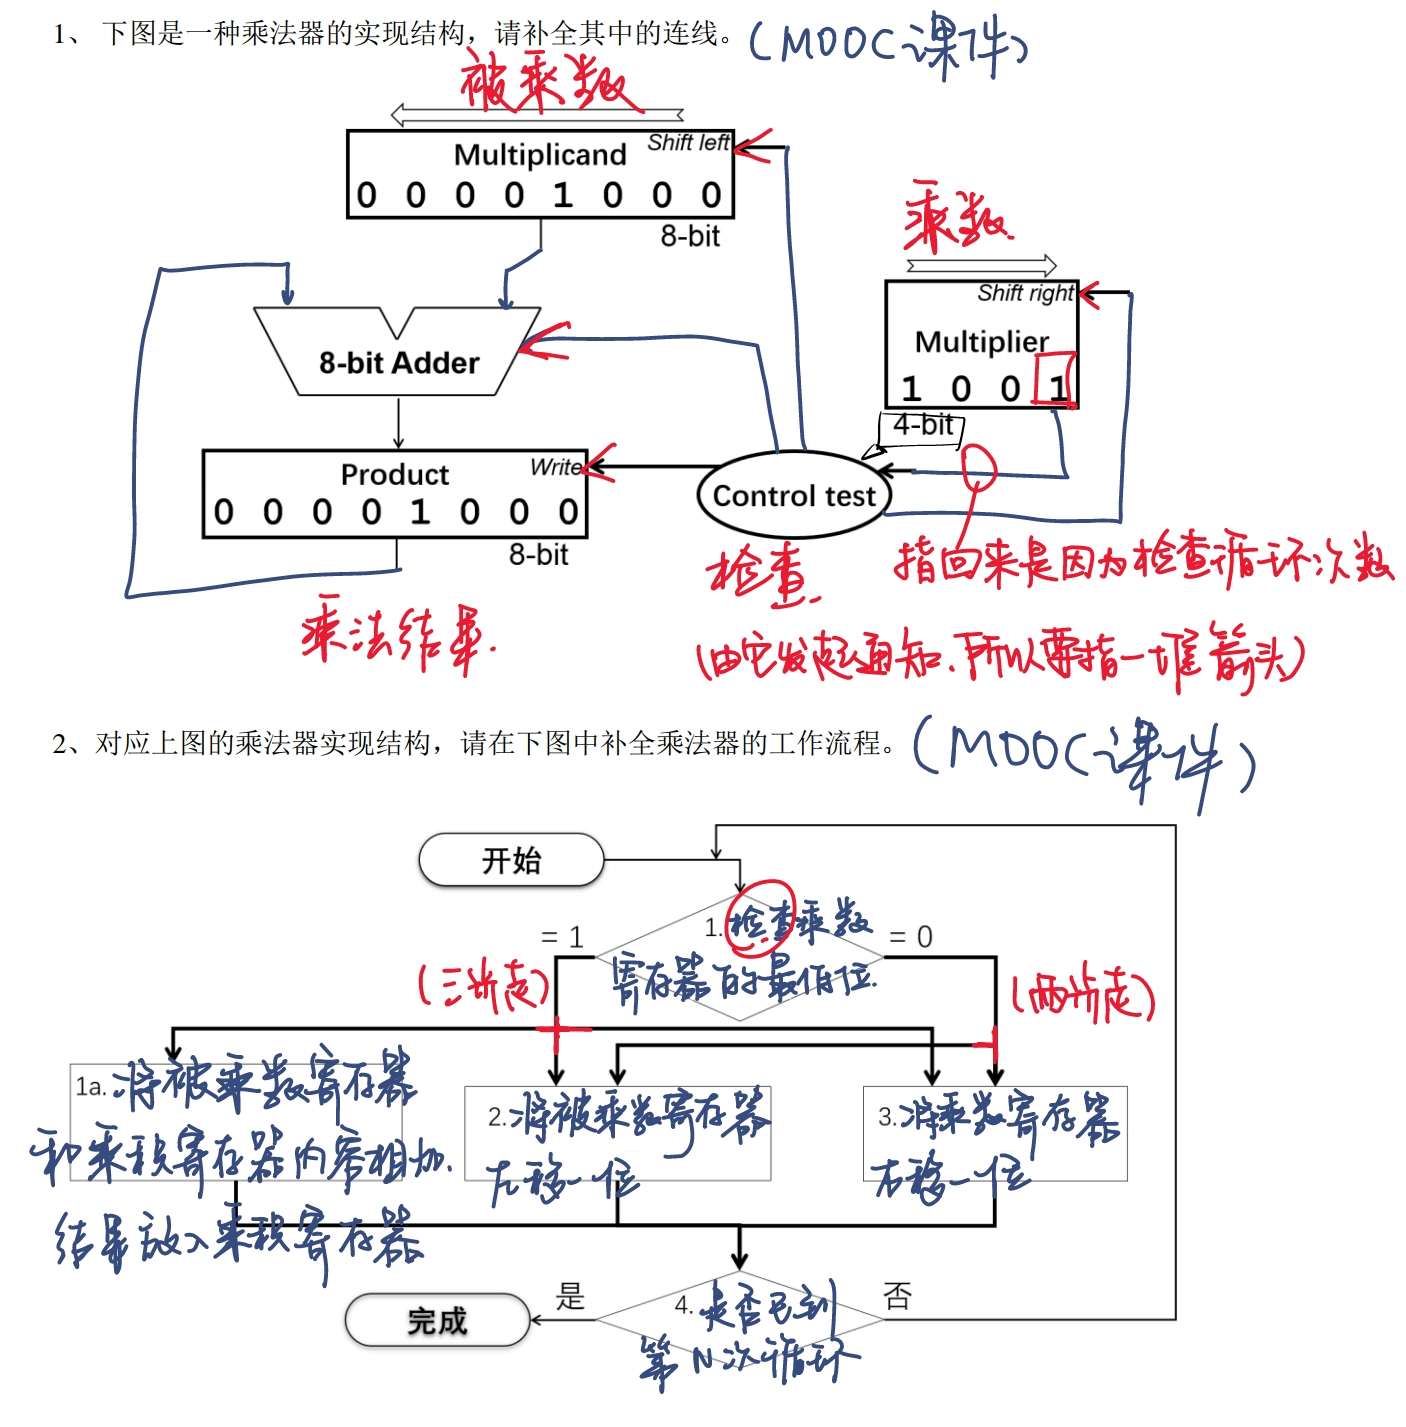 1、 下图是一种乘法器的实现结构，请补全其中的连线。(MOOC课件)
被乘数
Shift left
Multiplicand
0 0 0 0 1 0 0 0
8-bit
乘数
Shift right
Multiplier
1 0 0 1
4-bit
8-bit Adder
Write
Product
0 0 0 0 1 0 0 0
8-bit
Control test
检查
指回来是因为检查循环次数
乘法结果.
(由它发起通知.所以要指一堆箭头)
2、对应上图的乘法器实现结构，请在下图中补全乘法器的工作流程。(MOOC课件)
开始
1.检查乘数
寄存器的最低位.
= 1
= 0
(三步走)
(两步走)
1a.将被乘数寄存器
和乘积寄存器内容相加.
结果放入乘积寄存器
2.将被乘数寄存器
左移一位
3.将乘数寄存器
右移一位
4.是否已到
第N次循环
是
否
完成